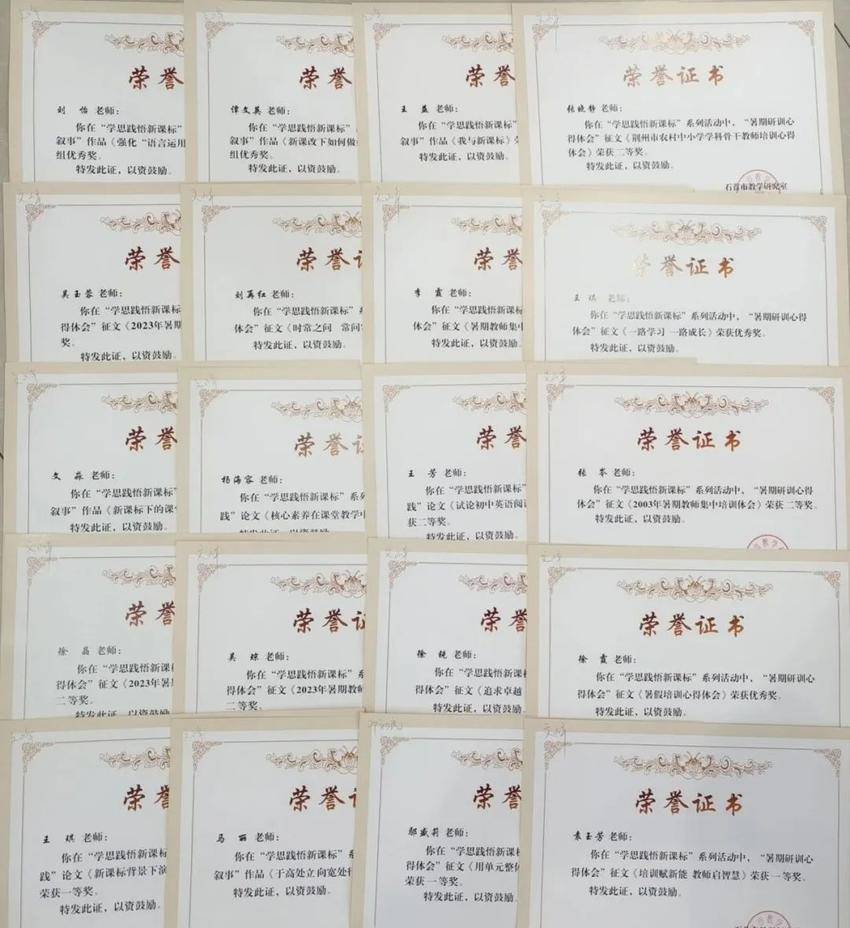 荣誉
刘 怡 老师：
你在“学思践悟新课标”
叙事”作品《强化“语言运用
组优秀奖。
特发此证，以资鼓励。
荣誉
谭文英 老师：
你在“学思践悟新课标”
叙事”作品《新课改下如何做
组优秀奖。
特发此证，以资鼓励。
荣誉
王 益 老师：
你在“学思践悟新课标”
叙事”作品《我与新课标》
特发此证，以资鼓励。
荣誉证书
张晓静 老师：
你在“学思践悟新课标”系列活动中，“暑期研训心
得体会”征文《荆州市农村中小学学科骨干教师培训心得
体会》荣获二等奖。
特发此证，以资鼓励。
石首市教学研究室
荣誉
吴玉蓉 老师：
你在“学思践悟新课标
得体会”征文《2023年暑期
奖。
特发此证，以资鼓励。
荣誉
刘再红 老师：
你在“学思践悟新课标”
体会”征文《时常之间 常问
特发此证，以资鼓励。
荣誉
李 霞 老师：
你在“学思践悟新课标”
体会”征文《暑期教师集中
特发此证，以资鼓励。
荣誉证书
王 琪 老师：
你在“学思践悟新课标”系列活动中，“暑期研训心得
体会”征文《一路学习 一路成长》荣获优秀奖。
特发此证，以资鼓励。
荣誉
文 淼 老师：
你在“学思践悟新课标”
叙事”作品《新课标下的课
特发此证，以资鼓励。
荣誉
杨海容 老师：
你在“学思践悟新课标”系
践”论文《核心素养在课堂教学中
荣誉
王 芳 老师：
你在“学思践悟新课标”
践”论文《试论初中英语阅
获二等奖。
特发此证，以资鼓励。
荣誉证书
张 岑 老师：
你在“学思践悟新课标”系列活动中，“暑期研训心得
体会”征文《2003年暑期教师集中培训体会》荣获二等奖。
特发此证，以资鼓励。
荣誉
徐 晶 老师：
你在“学思践悟新课标
得体会”征文《2023年暑
二等奖。
特发此证，以资鼓励
荣誉
吴 琼 老师：
你在“学思践悟新课标”
得体会”征文《2023年暑期教师
二等奖。
特发此证，以资鼓励。
荣誉
徐 锐 老师：
你在“学思践悟新课标”
得体会”征文《追求卓越
特发此证，以资鼓励。
荣誉证书
徐 霞 老师：
你在“学思践悟新课标”系列活动中，“暑期研训心
得体会”征文《暑假培训心得体会》荣获优秀奖。
特发此证，以资鼓励。
荣誉
王 琪 老师：
你在“学思践悟新课标
践”论文《新课标背景下
荣获一等奖。
特发此证，以资鼓励。
荣誉
马 丽 老师：
你在“学思践悟新课标”
叙事”作品《于高处立 向宽处
特发此证，以资鼓励。
荣誉
邬盛莉 老师：
你在“学思践悟新课标
得体会”征文《用单元整体
荣获一等奖。
特发此证，以资鼓励。
荣誉证书
袁玉芳 老师：
你在“学思践悟新课标”系列活动中，“暑期研训心
得体会”征文《培训赋新能 教师启智慧》荣获一等奖。
特发此证，以资鼓励。